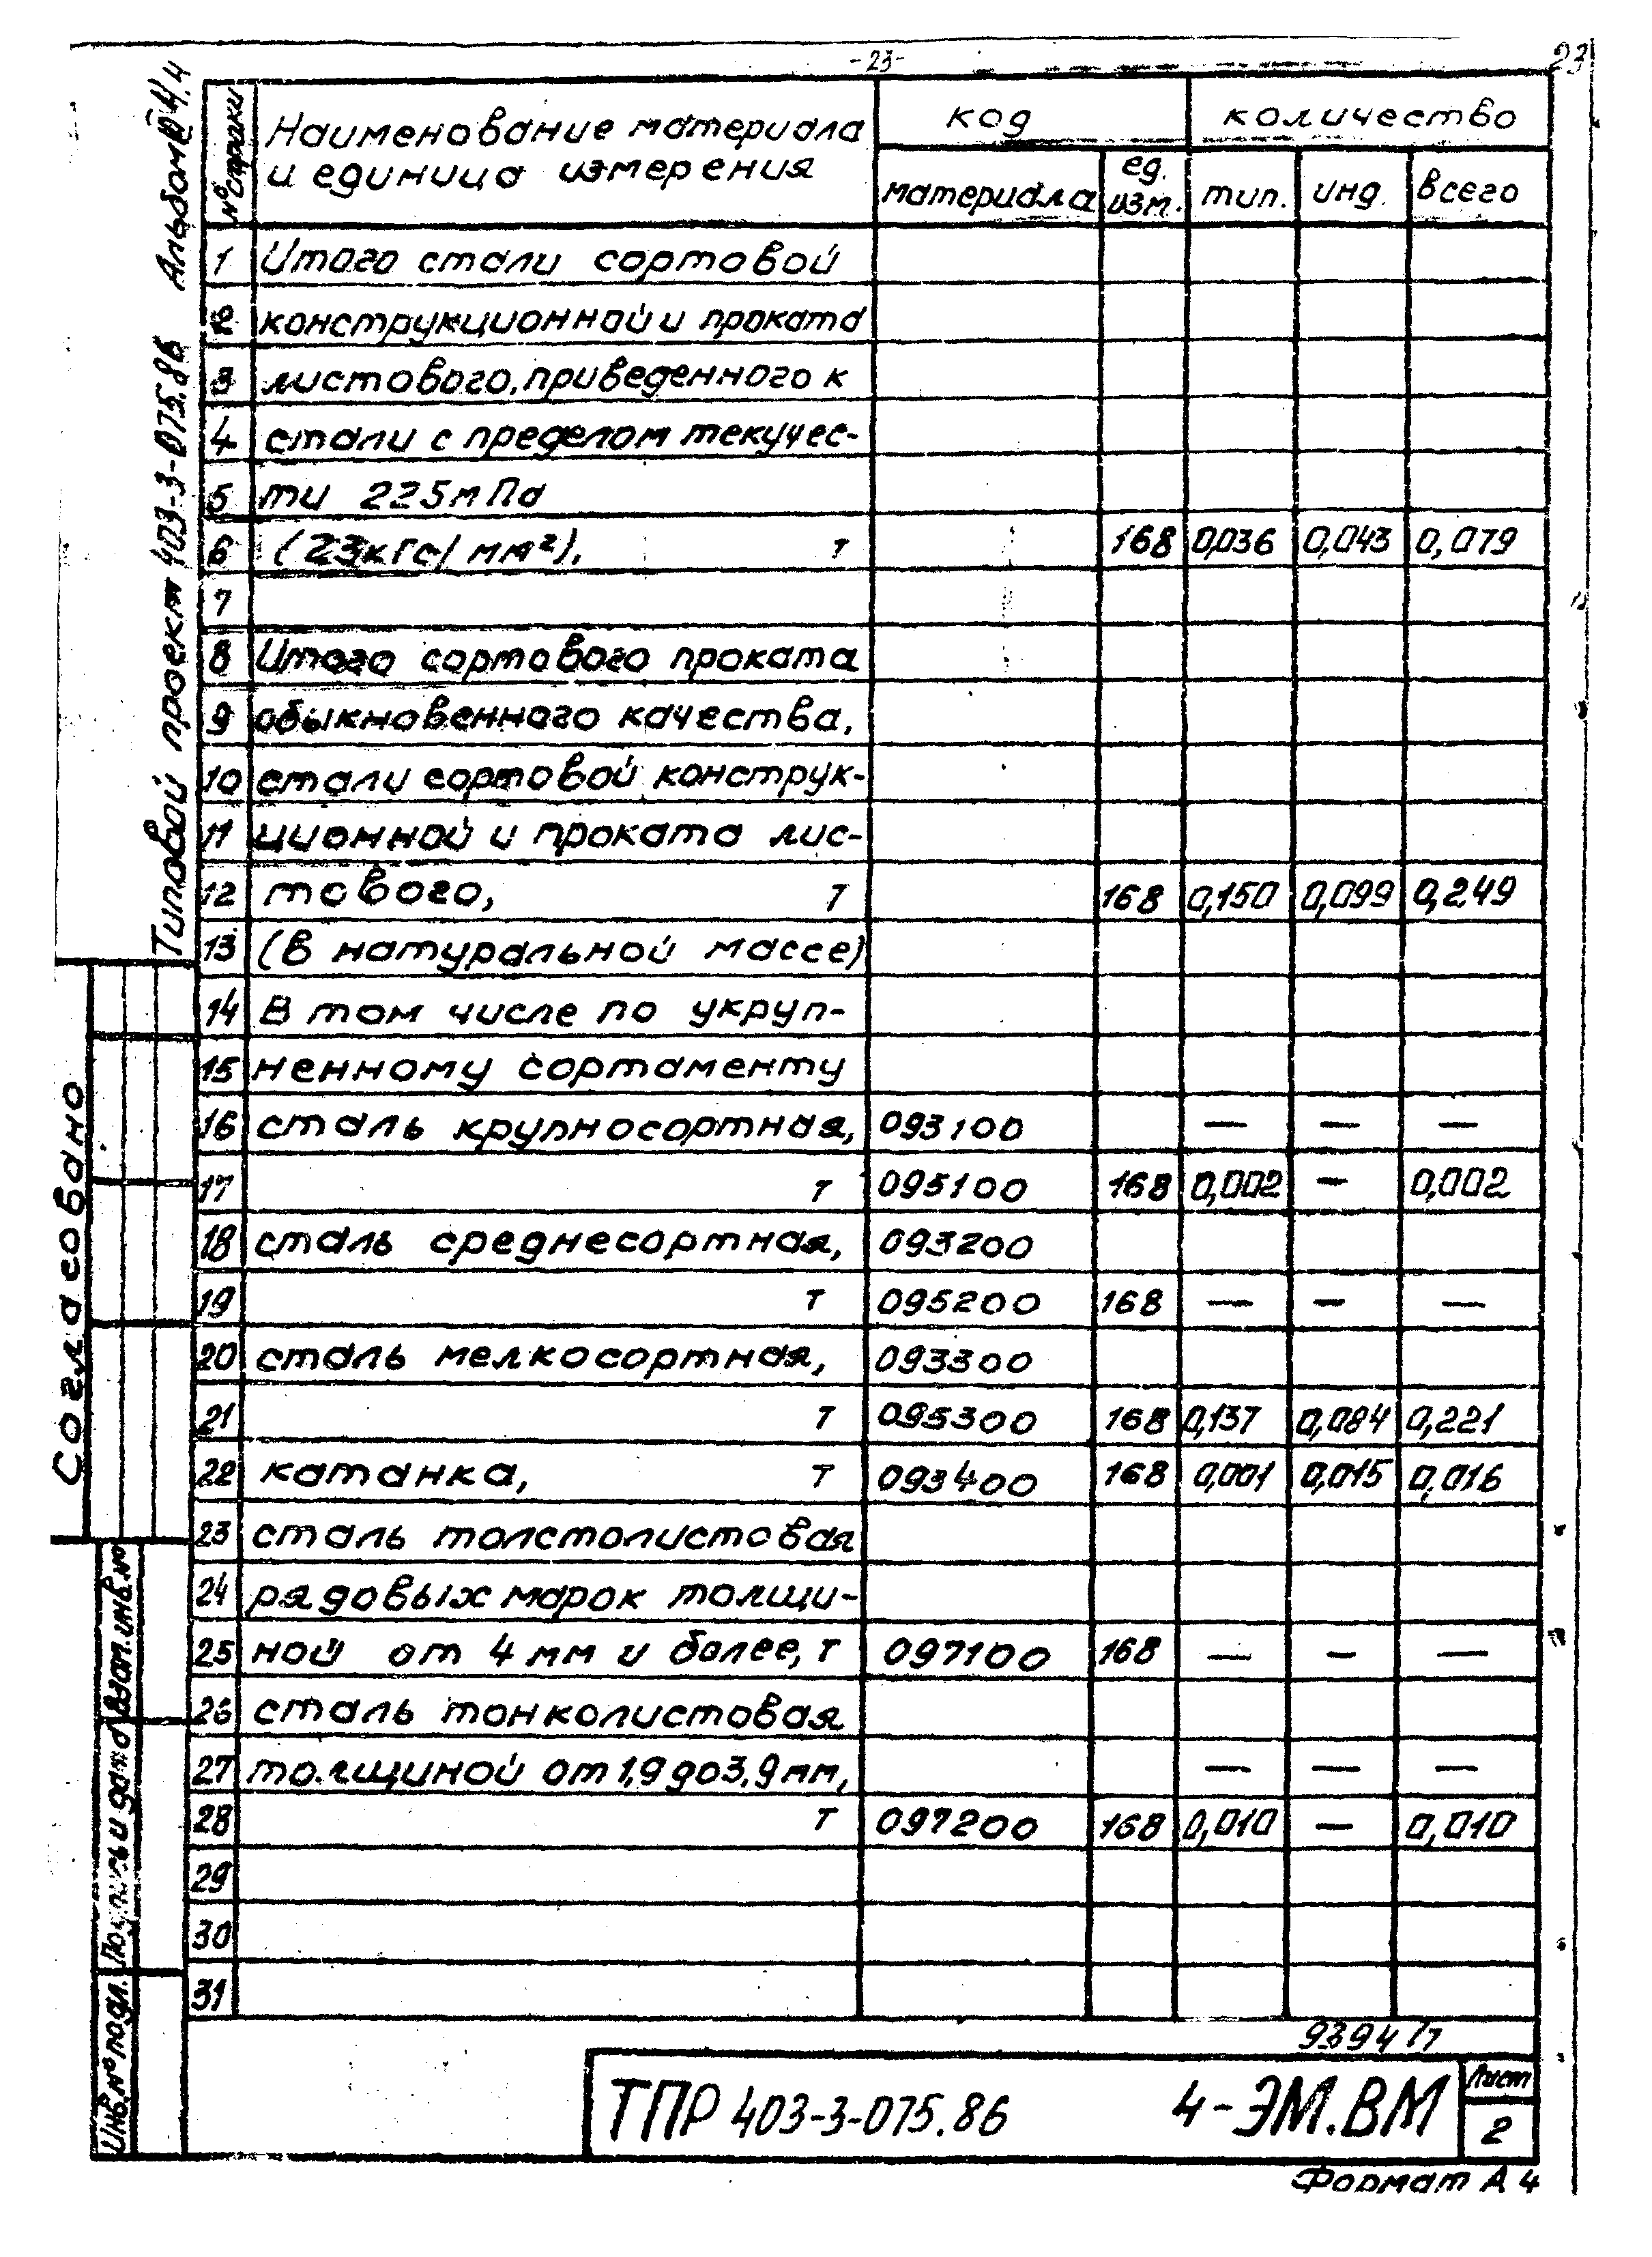 -23-
23
Альбом 4.4
Типовой проект 403-3-075.86
№ строки
Наименование материала
и единица измерения
код
количество
материала
ед.
изм.
тип.
инд.
всего
1 Итого стали сортовой
2 конструкционной и проката
3 листового, приведенного к
4 стали с пределом текучес-
5 ти 225мПа
6 (23кгс/мм²), т 168 0,036 0,043 0,079
7
8 Итого сортового проката
9 обыкновенного качества,
10 стали сортовой конструк-
11 ционной и проката лис-
12 тового, т 168 0,150 0,099 0,249
13 (в натуральной массе)
14 В том числе по укруп-
15 ненному сортаменту
16 сталь крупносортная, 093100 — — —
17 т 095100 168 0,002 — 0,002
18 сталь среднесортная, 093200
19 т 095200 168 — — —
20 сталь мелкосортная, 093300
21 т 095300 168 0,137 0,084 0,221
22 катанка, т 093400 168 0,001 0,015 0,016
23 сталь толстолистовая
24 рядовых марок толщи-
25 ной от 4 мм и более, т 097100 168 — — —
26 сталь тонколистовая
27 толщиной от 1,9 до 3,9 мм, — — —
28 т 097200 168 0,010 — 0,010
29
30
31
Согласовано
Взам.инв.№
Подпись и дата
Инв.№ подл.
9394/
ТПР 403-3-075.86 4-ЭМ.ВМ
Лист
2
Формат А4